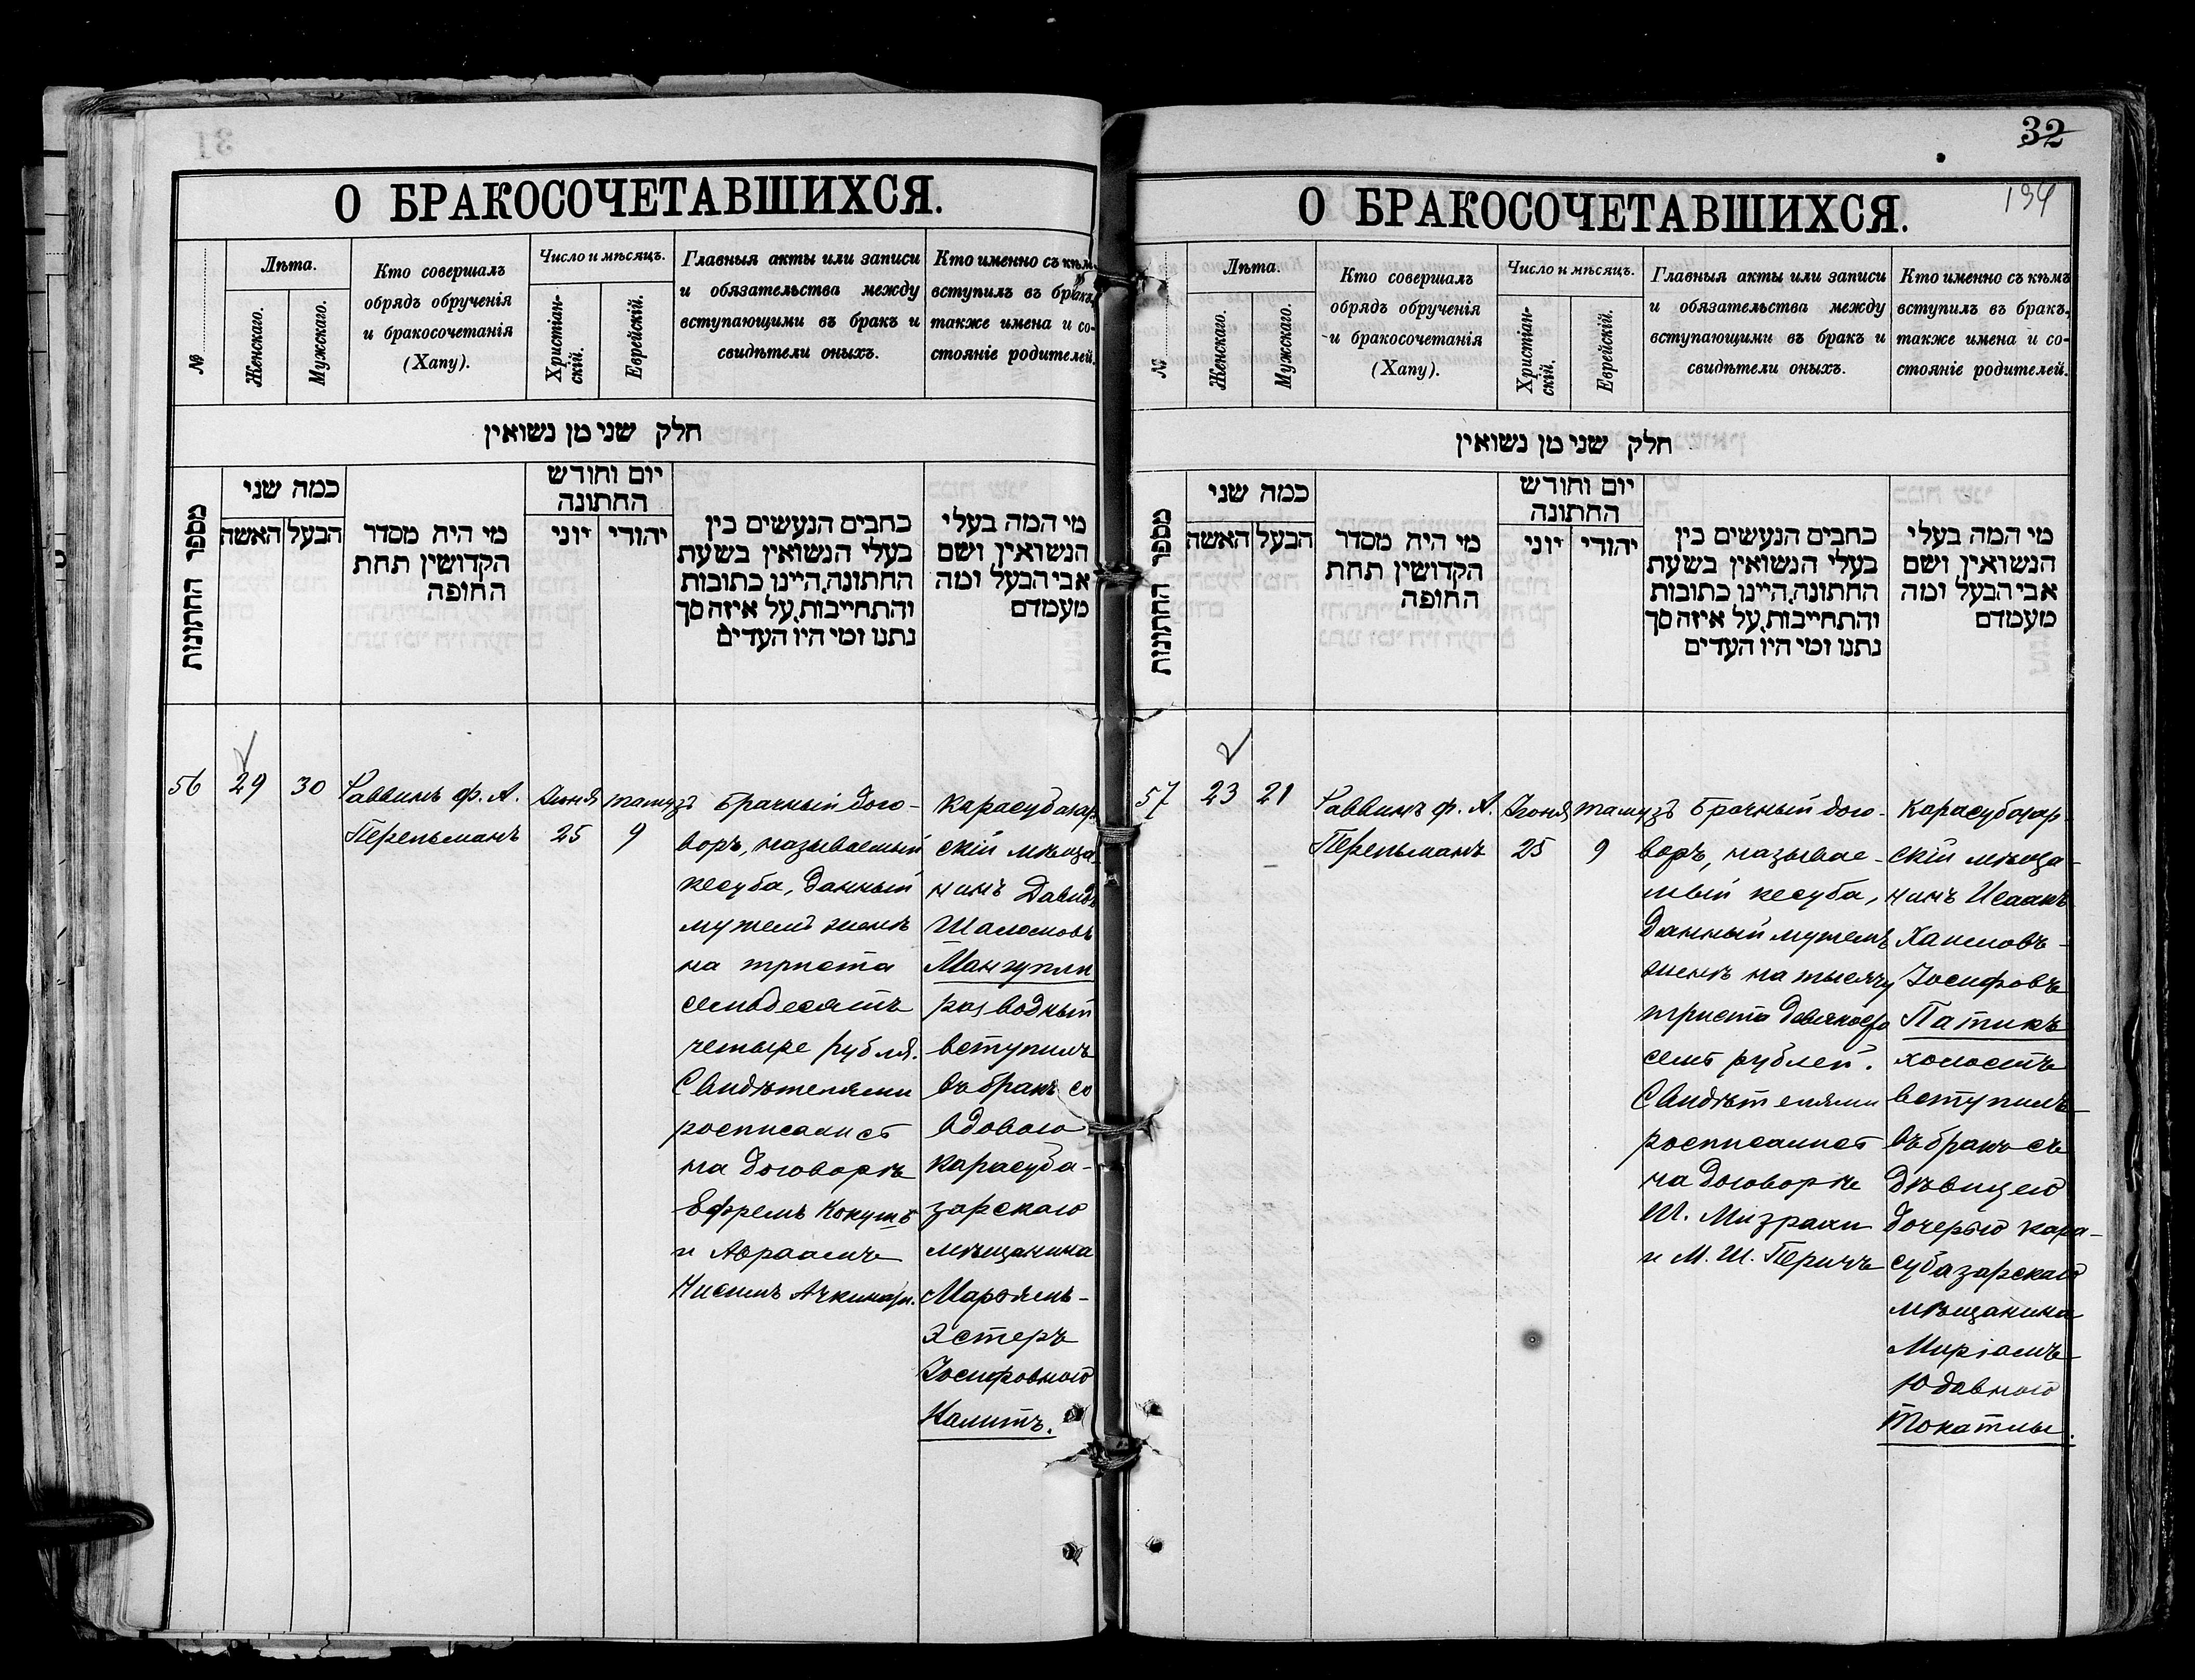 О БРАКОСОЧЕТАВШИХСЯ.
№
Лѣта.
Женскаго.
Мужскаго.
Кто совершалъ
обрядъ обрученія
и бракосочетанія
(Хапу).
Число и мѣсяцъ.
Христіан-
скій.
Еврейскій.
Главныя акты или записи
и обязательства между
вступающими въ бракъ и
свидѣтели оныхъ.
Кто именно съ кѣмъ
вступилъ въ бракъ,
также имена и со-
стояніе родителей.
חלק שני מן נשואין
מספר החתונות
כמה שני
האשה
הבעל
מי היה מסדר
הקדושין תחת
החופה
יום וחודש
החתונה
יוני
יהודי
כתבים הנעשים בין
בעלי הנשואין בשעת
החתונה, היינו כתובות
והתחייבות, על איזה סך
נתנו ומי היו העדים
מי המה בעלי
הנשואין ושם
אבי הבעל ומה
מעמדם
56
29
30
Раввинъ Ф. А.
Перельманъ
Іюня
25
тамузъ
9
Брачный дого-
воръ, называемый
кесуба, данный
мужемъ женѣ
на триста
семьдесятъ
четыре рубля.
Свидѣтелями
росписались
на договорѣ
Ефремъ Кокушъ
и Авраамъ
Нисимъ Ачкинази.
Карасубазар-
скій мѣща-
нинъ Давидъ
Шаломовъ
Мангупли
разводный
вступилъ
въ бракъ со
вдовою
карасуба-
зарскаго
мѣщанина
Марьямъ-
Эстеръ
Іосифовною
Камитъ.
32
134
О БРАКОСОЧЕТАВШИХСЯ.
№
Лѣта.
Женскаго.
Мужскаго.
Кто совершалъ
обрядъ обрученія
и бракосочетанія
(Хапу).
Число и мѣсяцъ.
Христіан-
скій.
Еврейскій.
Главныя акты или записи
и обязательства между
вступающими въ бракъ и
свидѣтели оныхъ.
Кто именно съ кѣмъ
вступилъ въ бракъ,
также имена и со-
стояніе родителей.
חלק שני מן נשואין
מספר החתונות
כמה שני
האשה
הבעל
מי היה מסדר
הקדושין תחת
החופה
יום וחודש
החתונה
יוני
יהודי
כתבים הנעשים בין
בעלי הנשואין בשעת
החתונה, היינו כתובות
והתחייבות, על איזה סך
נתנו ומי היו העדים
מי המה בעלי
הנשואין ושם
אבי הבעל ומה
מעמדם
57
23
21
Раввинъ Ф. А.
Перельманъ
Іюня
25
тамузъ
9
Брачный дого-
воръ, называе-
мый кесуба,
данный мужемъ
женѣ на тысячу
триста девяносто
семь рублей.
Свидѣтелями
росписались
на договорѣ
Ш. Мизрахи
и М. Ш. Перичъ
Карасубазар-
скій мѣща-
нинъ Исаакъ
Хаимовъ-
Іосифовъ
Патикъ
холостъ
вступилъ
въ бракъ съ
дѣвицею
дочерью кара-
субазарскаго
мѣщанина
Миріамъ
Юдовною
Токатлы.